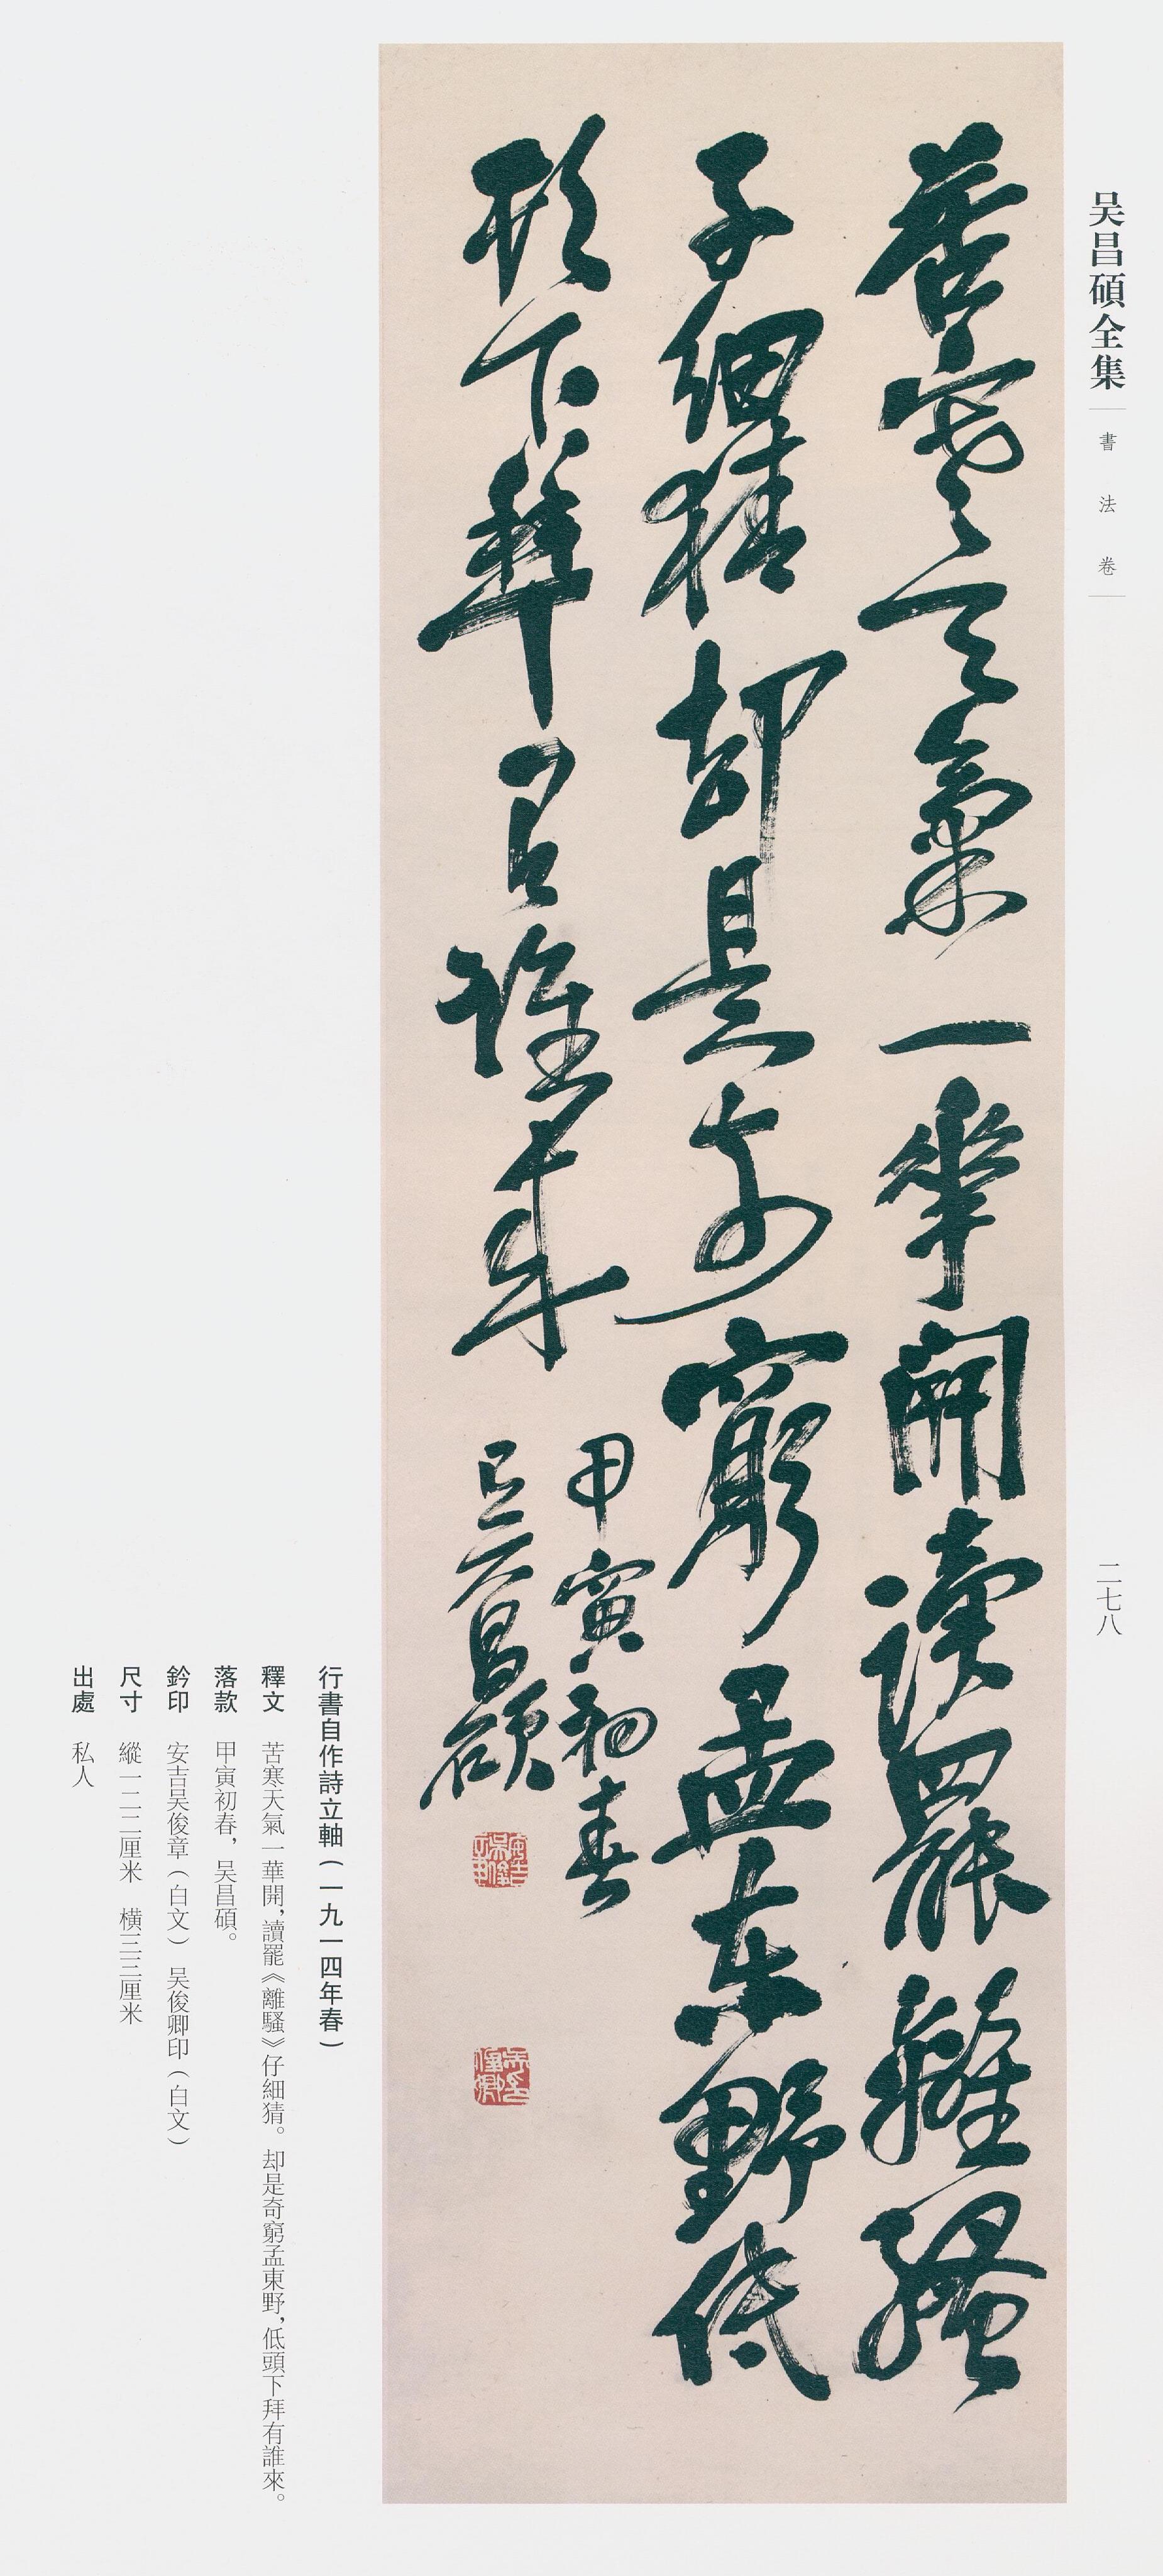 吴昌碩全集
書法卷
二七八
苦寒天氣一華開讀罷離騷
子細猜却是奇窮孟東野低
頭下拜有誰來
甲寅初春
吴昌碩
安吉吴俊章
吴俊卿印
行書自作詩立軸(一九一四年春)
釋文 苦寒天氣一華開,讀罷《離騷》仔細猜。却是奇窮孟東野,低頭下拜有誰來。
落款 甲寅初春,吴昌碩。
鈐印 安吉吴俊章(白文) 吴俊卿印(白文)
尺寸 縱一二二厘米 橫三三厘米
出處 私人